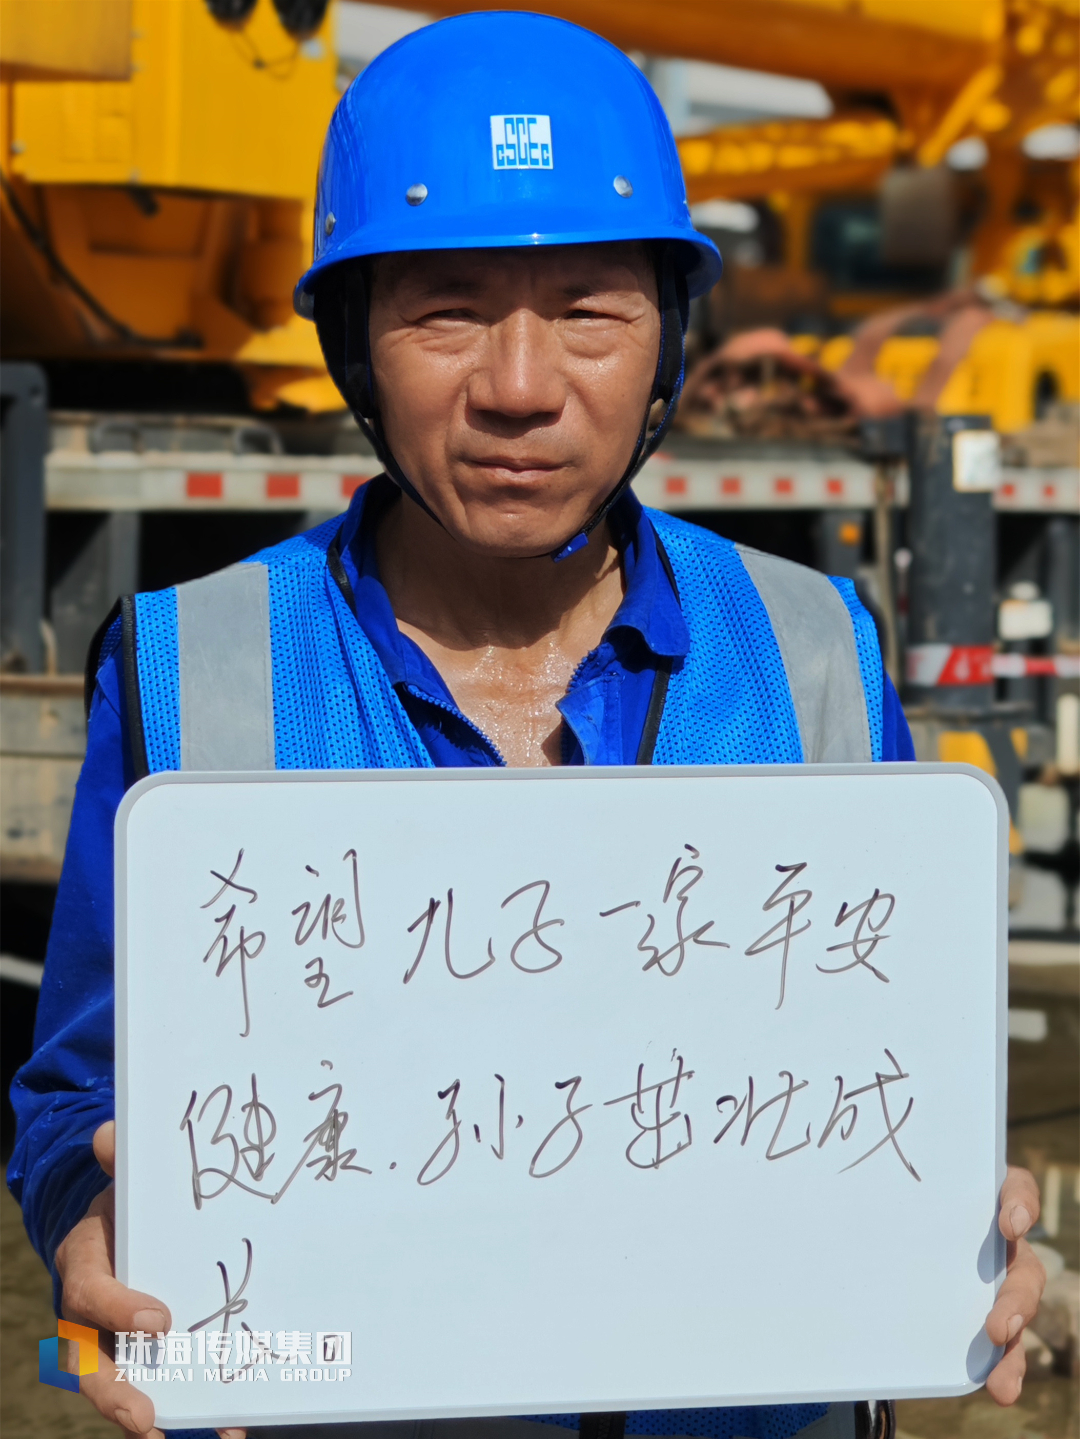 CSCEC
希望儿子一家平安
健康.孙子茁壮成
长。
珠海传媒集团
ZHUHAI MEDIA GROUP